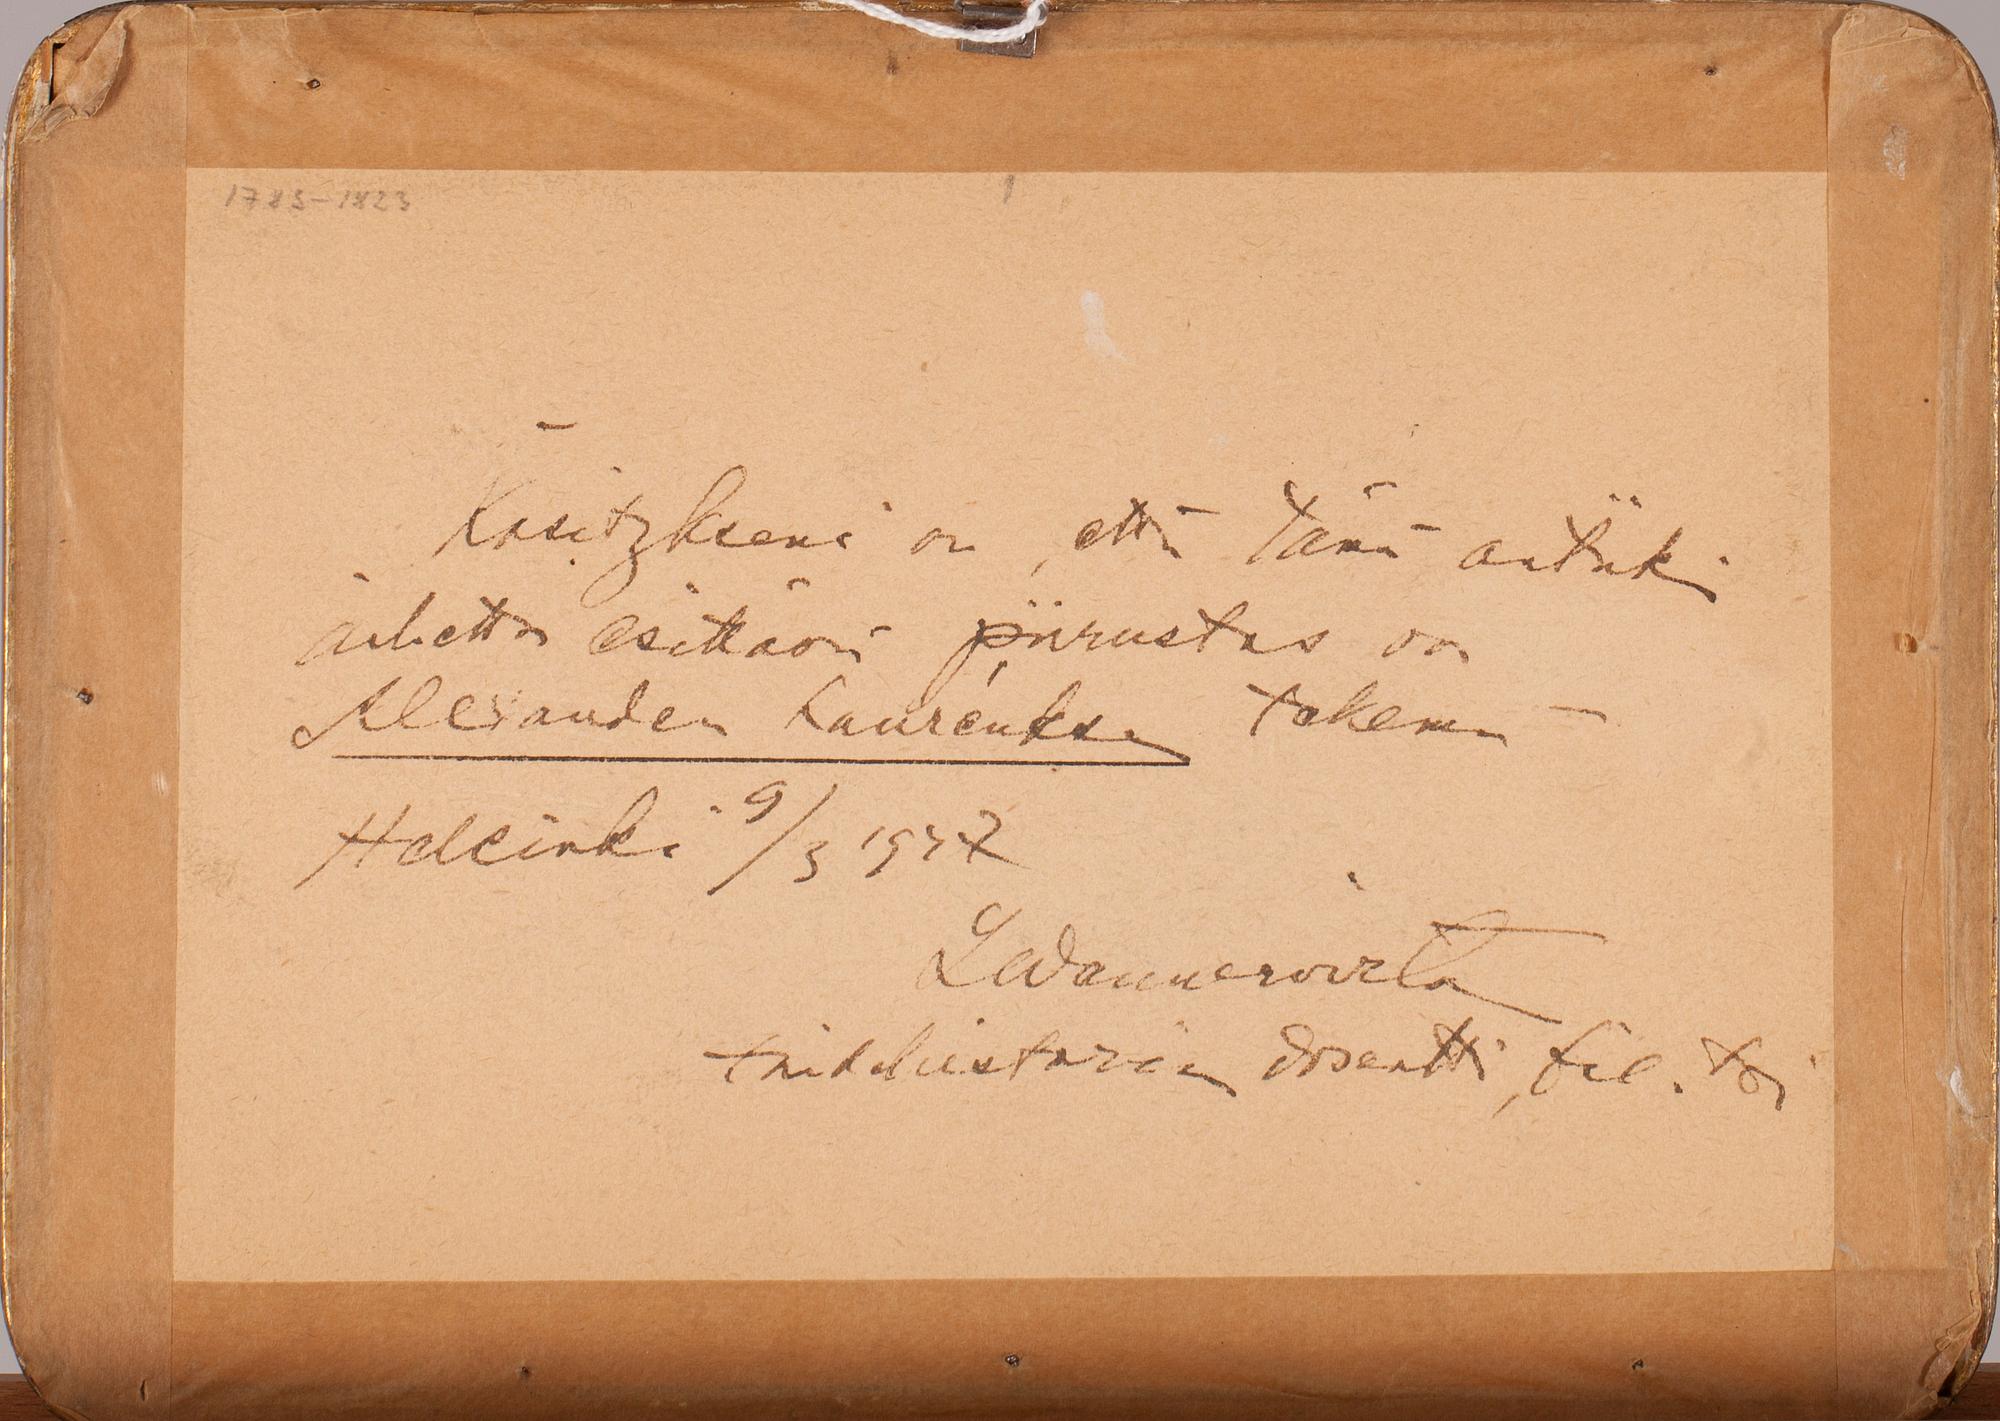 1783-1823
Käsitykseni on, että tämä antiikki
aihetta esittävä piirustus on
Alexander Lauréuksen tekemä
Helsinki 9/3 1947
L Wennervirta
taidehistorian dosentti, fil. tri